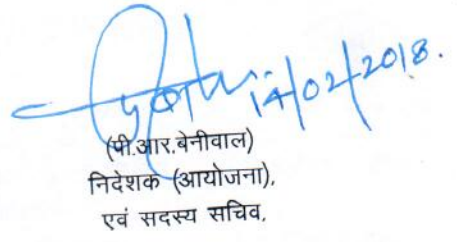 14/02/2018.
(पी.आर.बेनीवाल)
निदेशक (आयोजना),
एवं सदस्य सचिव,